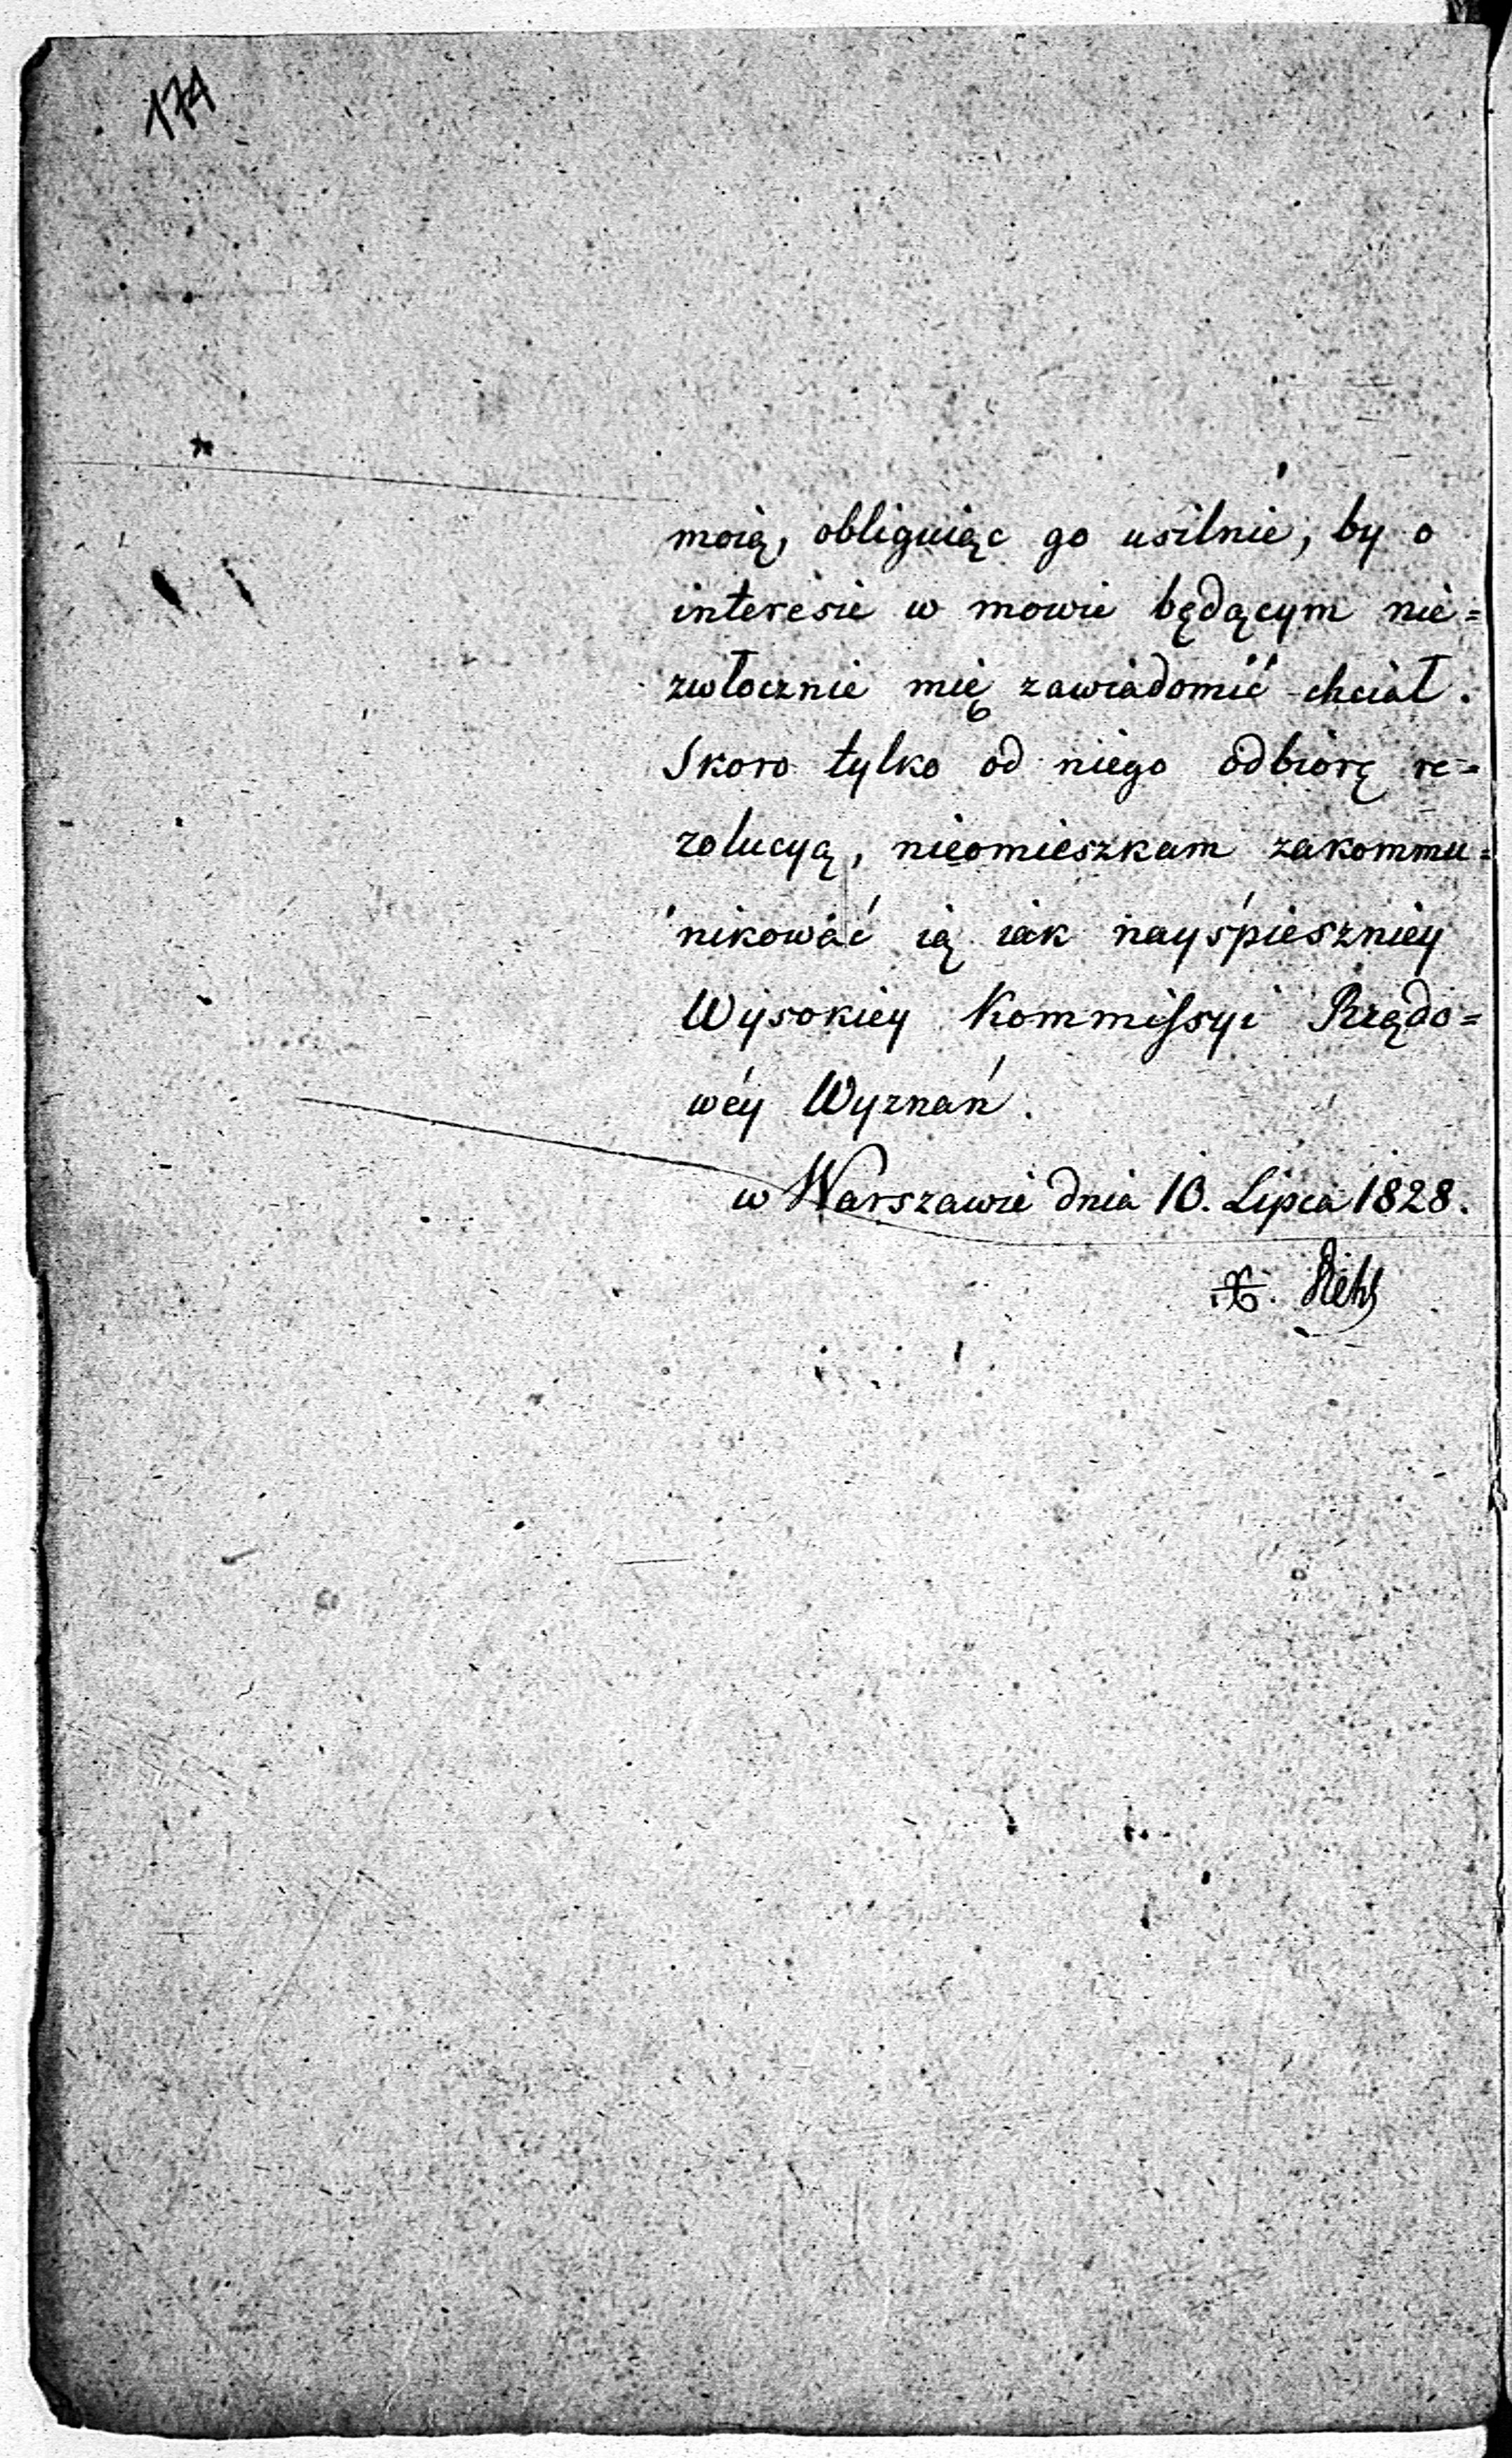 174
moią, obliguiąc go usilnie, by o
interesie w mowie będącym nie=
zwłocznie mię zawiadomić chciał.
Skoro tylko od niego odbiorę re=
zolucyą, nieomieszkam zakommu=
nikować ią iak nayśpieszniey
Wysokiey Kommissyi Rządo=
wéy Wyznań.
w Warszawie dnia 10. Lipca 1828.
X.